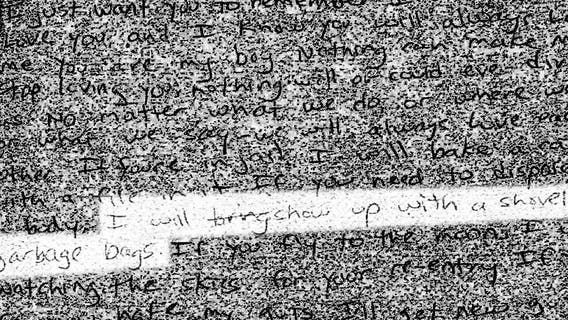 I just want you to remember I
Love you and I know you will always
me you are my boy. Nothing can make
stop loving you, nothing will or could ever div
us. No matter what we do or where we
or what we say - we will always love ea
other. If you're in jail I will bake a ca
with a file in it. If you need to dispose
body. I will bring show up with a shovel
garbage bags. If you fly to the moon, I
watching the skies for your re-entry. If
hate my guts, I'll get new gu